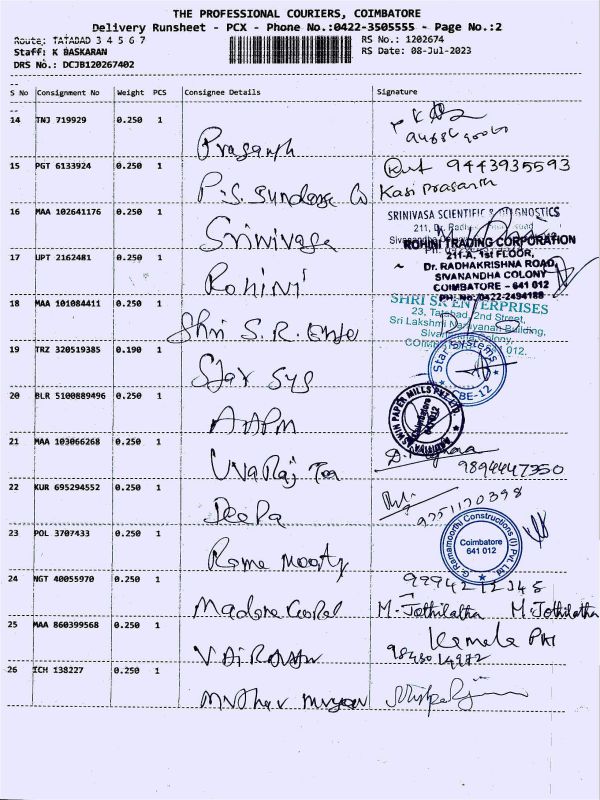 THE PROFESSIONAL COURIERS, COIMBATORE
Delivery Runsheet - PCX - Phone No.:0422-3505555 - Page No.:2
Route: TATABAD 3 4 5 6 7 RS No.: 1202674
Staff: K BASKARAN RS Date: 08-Jul-2023
DRS No.: DCJB120267402
S No Consignment No Weight PCS Consignee Details Signature
14 TNJ 719929 0.250 1
Prasanth
15 PGT 6133924 0.250 1 9443935593
P.S. Sundara Co Kasi Prasanth
16 MAA 102641176 0.250 1 SRINIVASA SCIENTIFIC & DIAGNOSTICS
Srinivasa
17 UPT 2162481 0.250 1 ROHINI TRADING CORPORATION
211-A, 1st FLOOR,
Dr. RADHAKRISHNA ROAD,
SIVANANDHA COLONY
COIMBATORE - 641 012
PH. No: 0422-2494188
Rohini
18 MAA 101084411 0.250 1 SHRI SR ENTERPRISES
23, Tatabad, 2nd Street,
Sri Lakshmi Narayanan Building,
Sivanandha Colony,
012.
Shri S.R. Ente
19 TRZ 320519385 0.190 1 Star Systems
CBE-12
Star Sys
20 BLR 5100889496 0.250 1
PAPER MILLS PVT LTD
Coimbatore
641012
AAPM
21 MAA 103066268 0.250 1
9894447350
Uvaraj Tea
22 KUR 695294552 0.250 1
9751170398
Deepa
23 POL 3707433 0.250 1 G. Ramamoorthi Constructions (I) Pvt. Ltd
Coimbatore
641 012
Rama Moorty
24 NGT 40055970 0.250 1 9994212345
Madona Coral M. Jothilatha M. Jothilatha
25 MAA 860399568 0.250 1 Kamala
9843014972
VAIRAVAN
26 ICH 138227 0.250 1